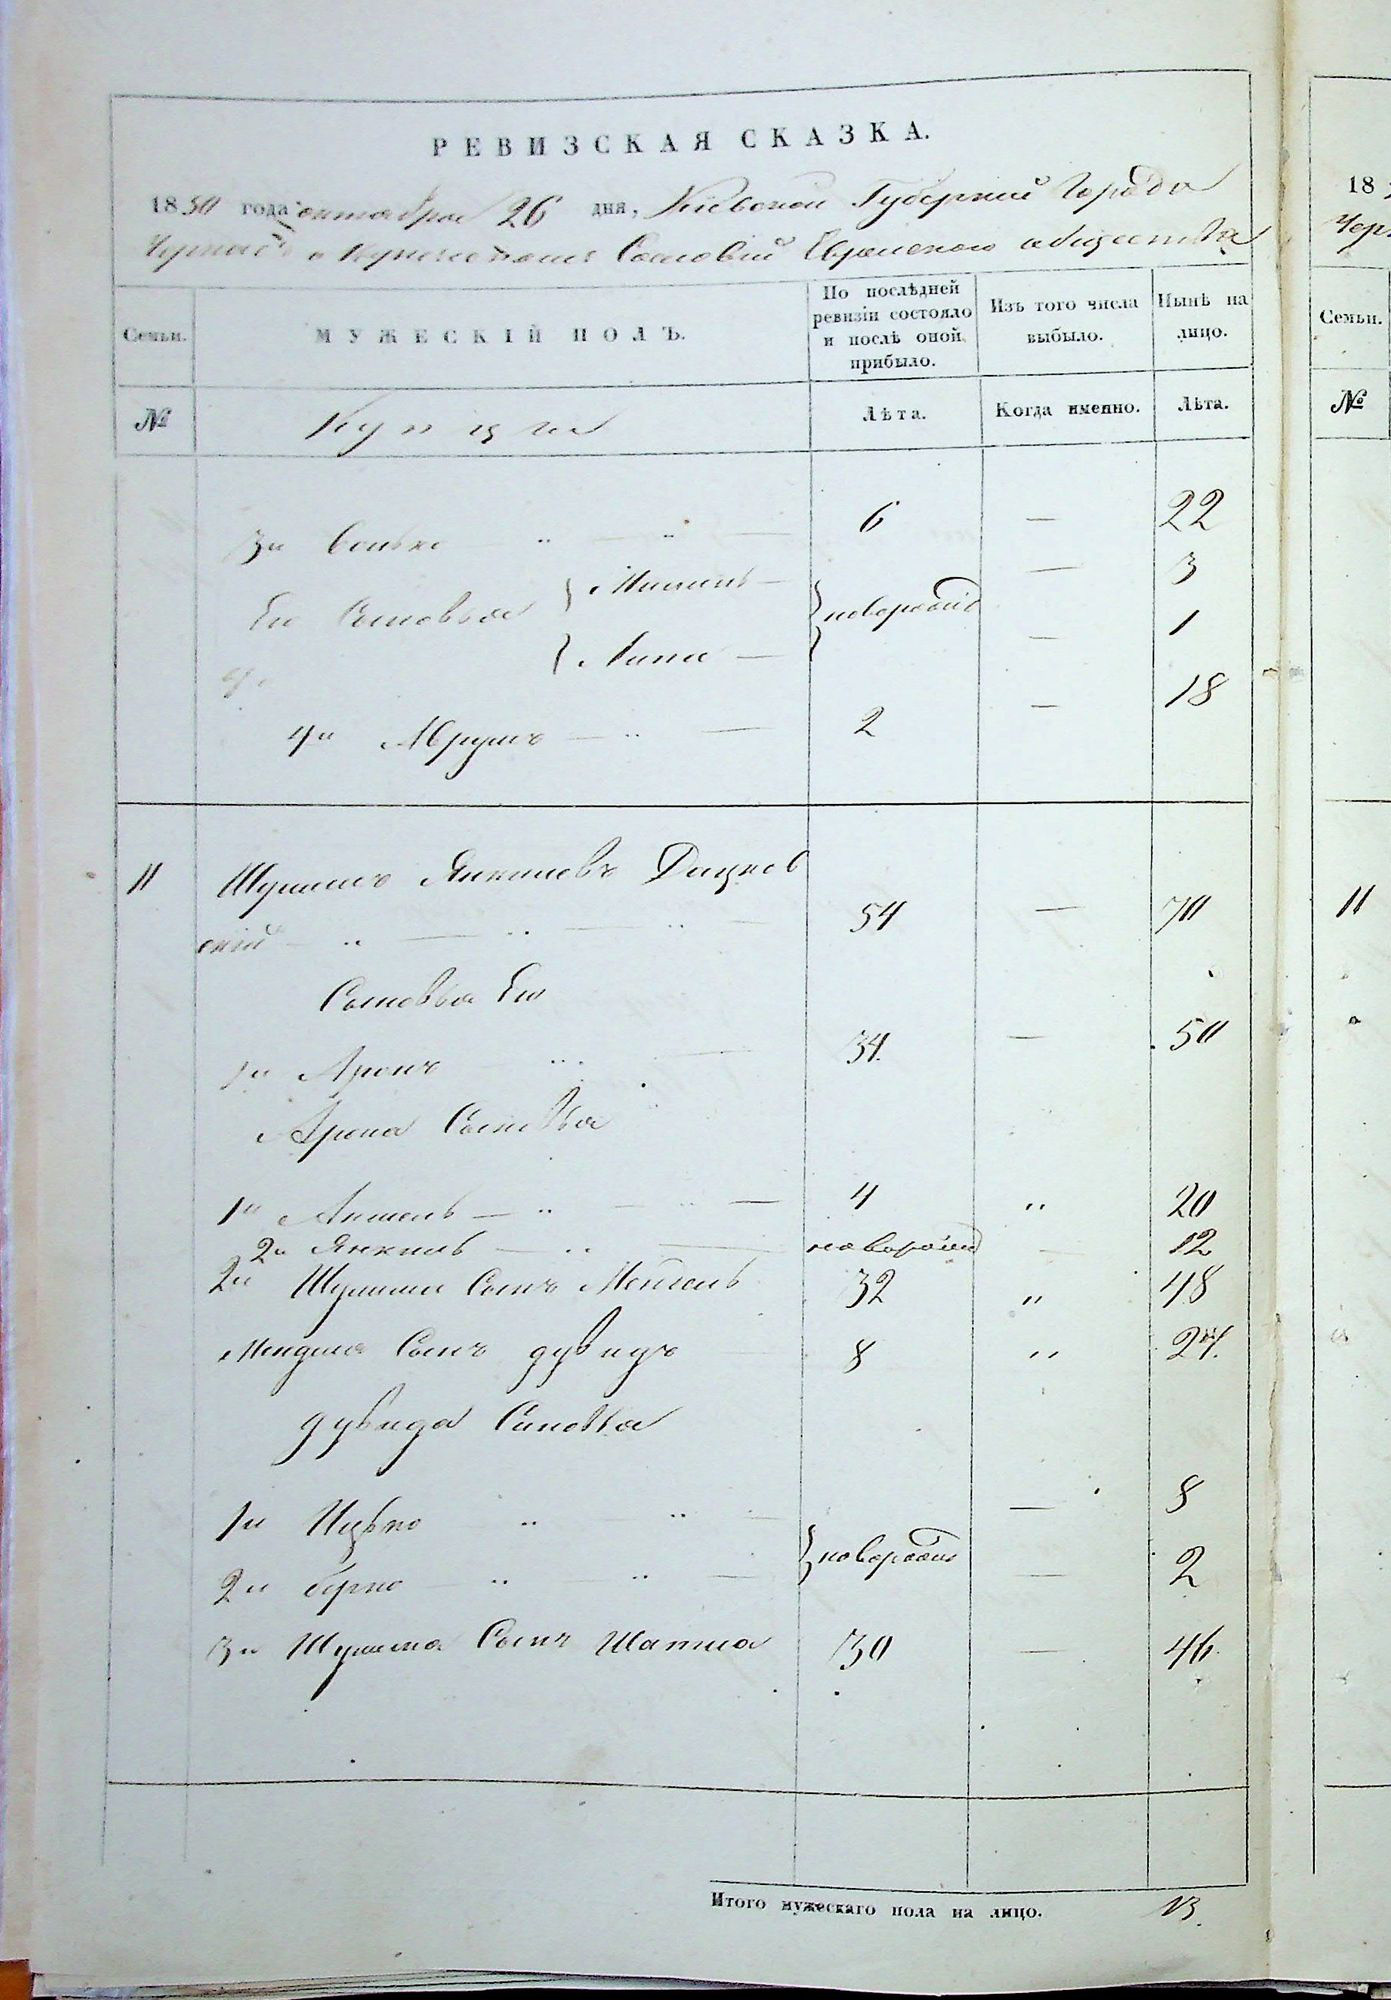 РЕВИЗСКАЯ СКАЗКА.
1850 года октября 26 дня, Кіевской Губерніи Города
о Купеческомъ Сословіи Еврейскаго общества
Семьи. МУЖЕСКІЙ ПОЛЪ. По послѣдней ревизіи состояло и послѣ оной прибыло. Изъ того числа выбыло. Нынѣ на лицо.
№ Купцы Лѣта. Когда именно. Лѣта.
3й 6 — 22
Его Сыновья — новорожд — 3
— 1
4й Аврумъ — 2 — 18
11 Шулимъ Янкилевъ Дацков
скій — 54 — 70
Сыновья Его
1й Аронъ — 34. — 50
Арона Сыновья
1й Аншель — 4 " 20
2й Янкиль — новорожд — 12
2й Шулима Сынъ Мендель 32 " 48
Мендиля Сынъ Дувидъ 8 " 24.
Дувида Синовья
1й Ицько — 8
2й Берко — новорожд — 2
3й Шулима Сынъ 30 — 46.
Итого мужескаго пола на лицо. 13.
18
Чер
Семьи.
№
11